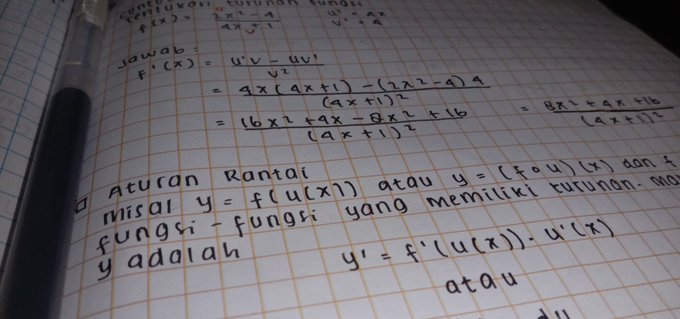 tentukan turunan fungsi
f(x) = 2x² - 4 / 4x + 1 u' = 4x
v' = 4
Jawab :
f'(x) = u'v - uv' / v²
= 4x(4x+1) - (2x² - 4) 4 / (4x+1)²
= 16x² + 4x - 8x² + 16 / (4x+1)² = 8x² + 4x + 16 / (4x+1)²
Aturan Rantai
misal y = f(u(x)) atau y = (f o u)(x) dan f
fungsi - fungsi yang memiliki turunan.
y adalah
y' = f'(u(x)) . u'(x)
atau